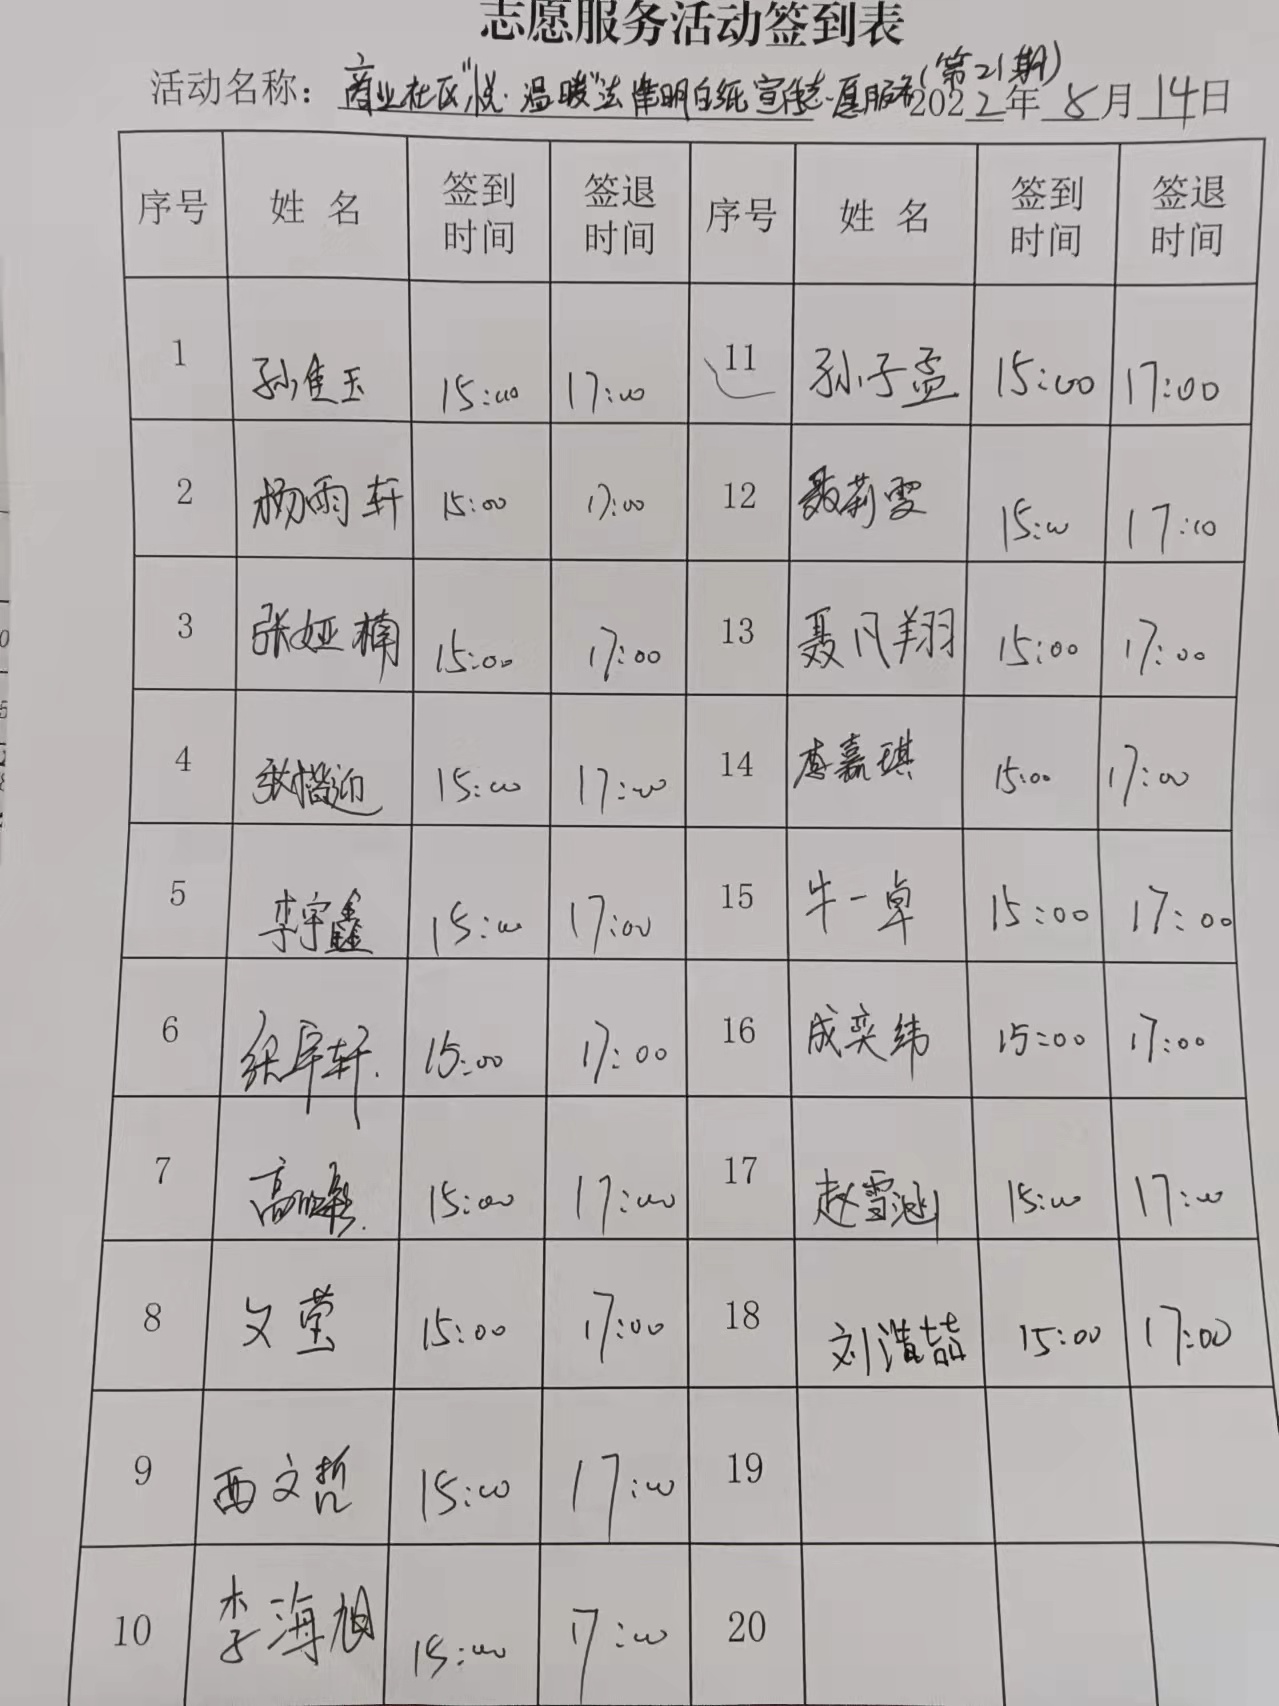 志愿服务活动签到表
活动名称：商业社区"悦·温暖"法律明白纸宣传志愿服务(第21期) 2022年8月14日
序号 姓名 签到时间 签退时间 序号 姓名 签到时间 签退时间
1 孙佳玉 15:00 17:00 11 孙子孟 15:00 17:00
2 杨雨轩 15:00 17:00 12 聂莉雯 15:00 17:00
3 张娅楠 15:00 17:00 13 聂凡翔 15:00 17:00
4 15:00 17:00 14 李嘉琪 15:00 17:00
5 李宇鑫 15:00 17:00 15 牛一卓 15:00 17:00
6 张宇轩 15:00 17:00 16 成奕纬 15:00 17:00
7 高 15:00 17:00 17 赵雪涵 15:00 17:00
8 文莹 15:00 17:00 18 刘浩喆 15:00 17:00
9 西文哲 15:00 17:00 19
10 李海旭 15:00 17:00 20